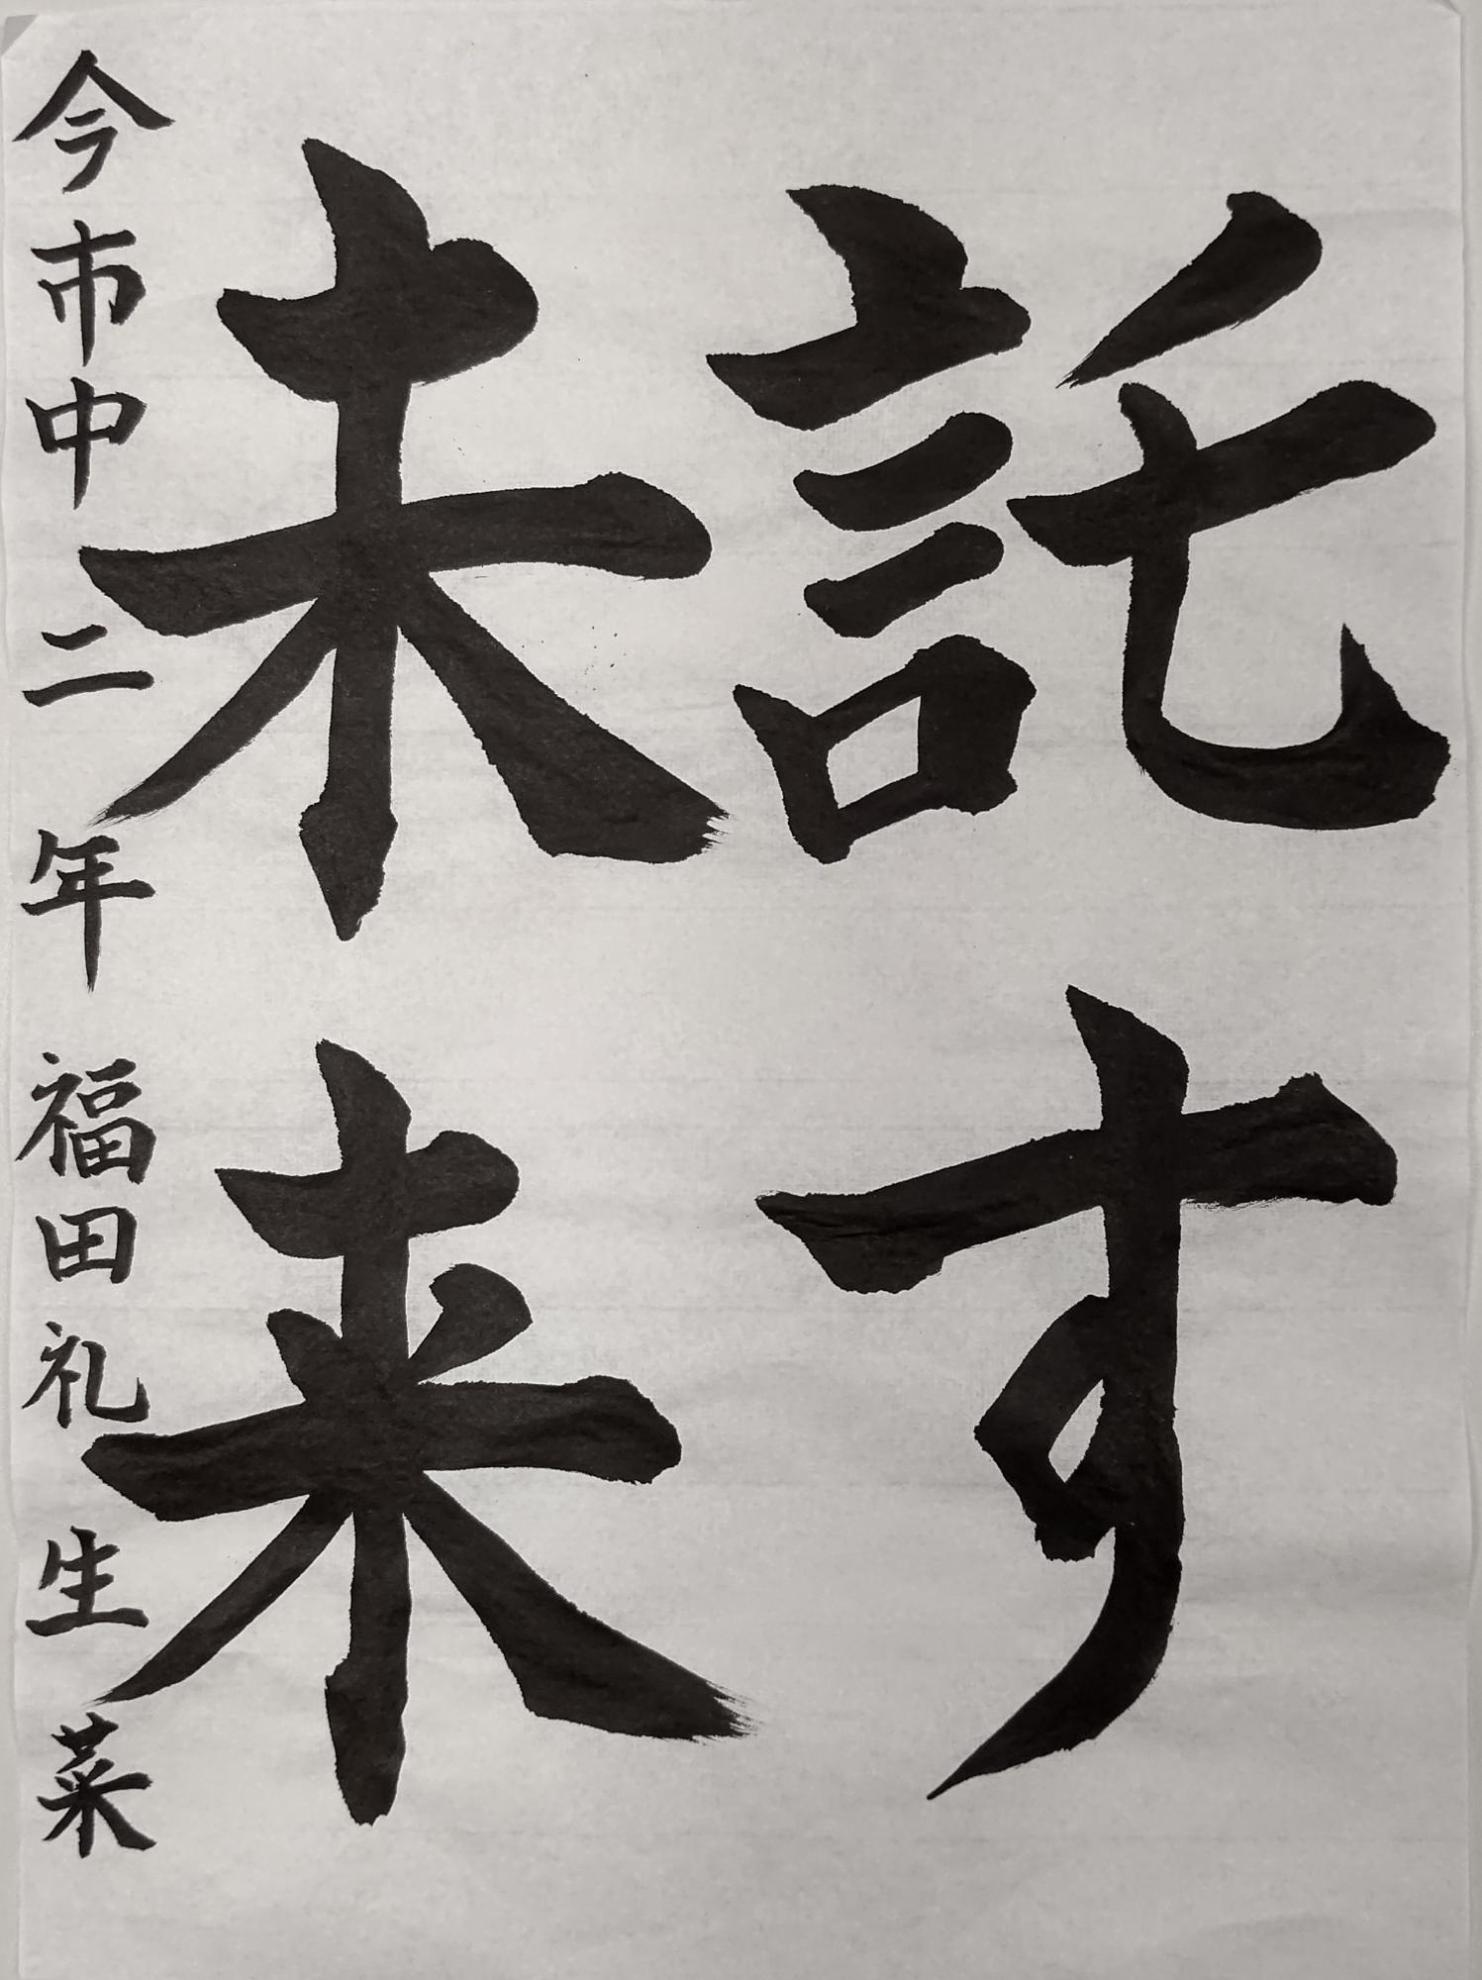 託す
未来
今市中二年 福田礼生菜